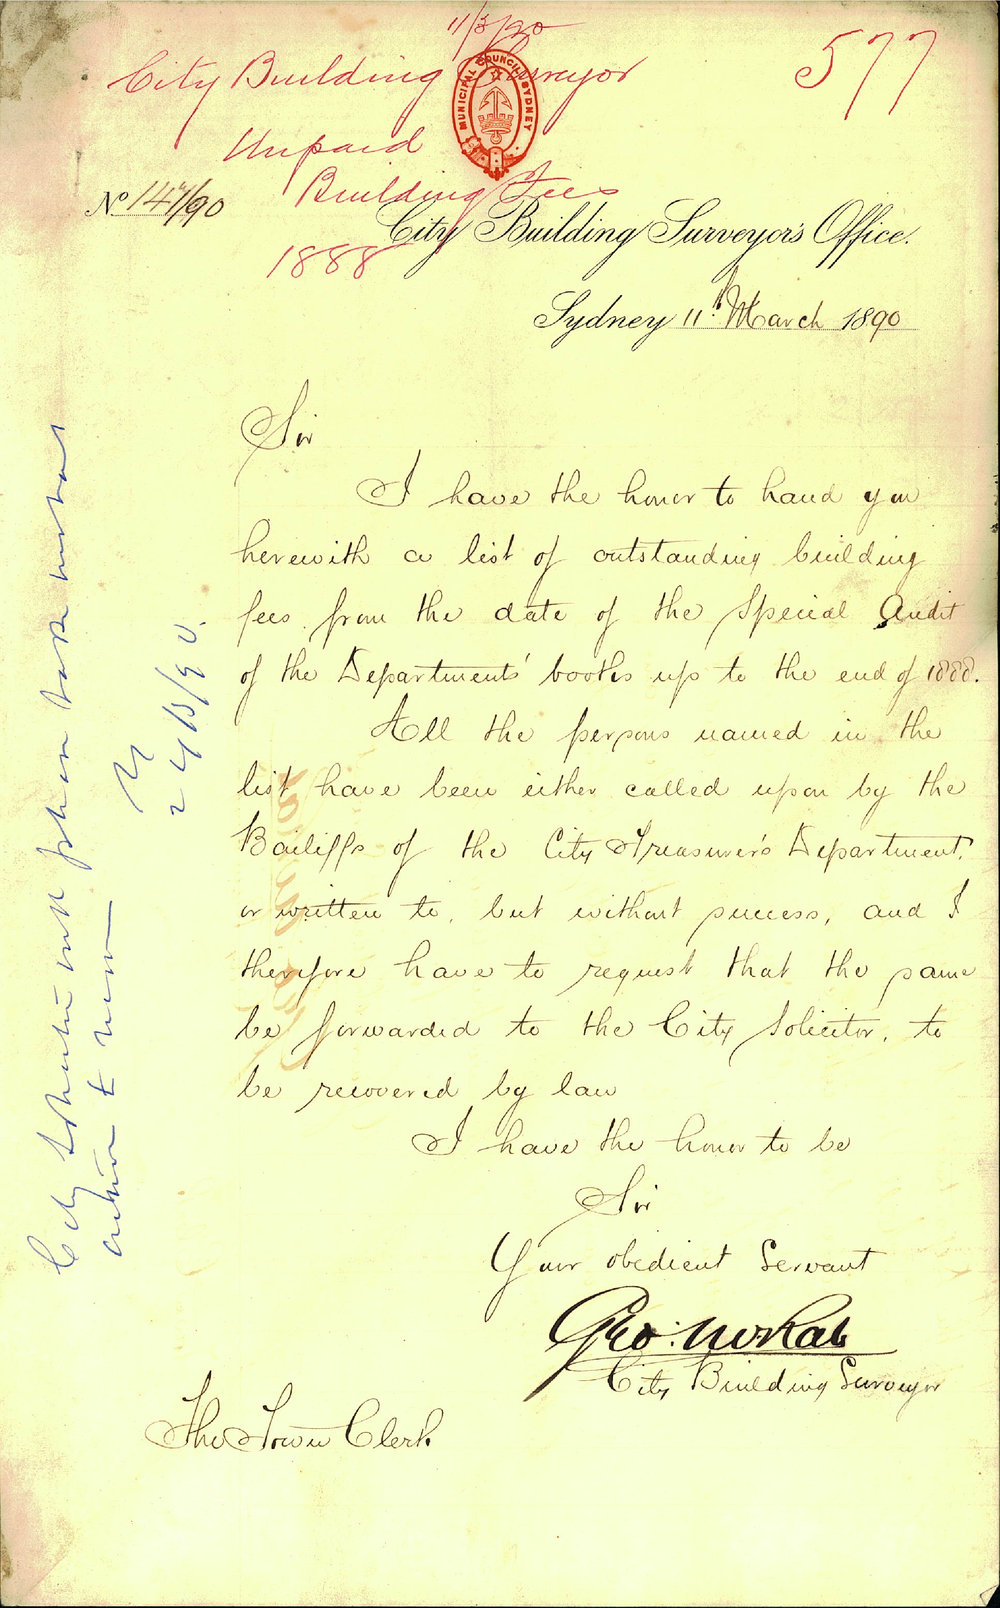 11/3/90
577
City Building Surveyor
Unpaid
Building Fees
1888
MUNICIPAL COUNCIL SYDNEY
No 147/90
City Building Surveyor's Office.
Sydney 11th March 1890
Sir
I have the honor to hand you
herewith a list of outstanding building
fees from the date of the Special Audit
of the Departments' books up to the end of 1888.
All the persons named in the
list have been either called upon by the
Bailiffs of the City Treasurer's Department,
or written to, but without success, and I
therefore have to request that the same
be forwarded to the City Solicitor, to
be recovered by law
I have the honor to be
Sir
Your obedient Servant
Geo: McRae
City Building Surveyor
The Town Clerk
City Solicitor will please take necessary
action to recover
24/3/90.